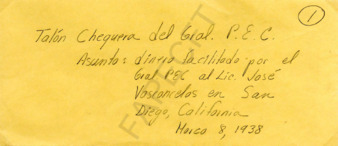 1
Talón Chequera del Gral. P. E. C.
Asunto: dinero facilitado por el
Gral PEC al Lic. José
Vasconcelos en San
Diego, California
Marzo 8, 1938